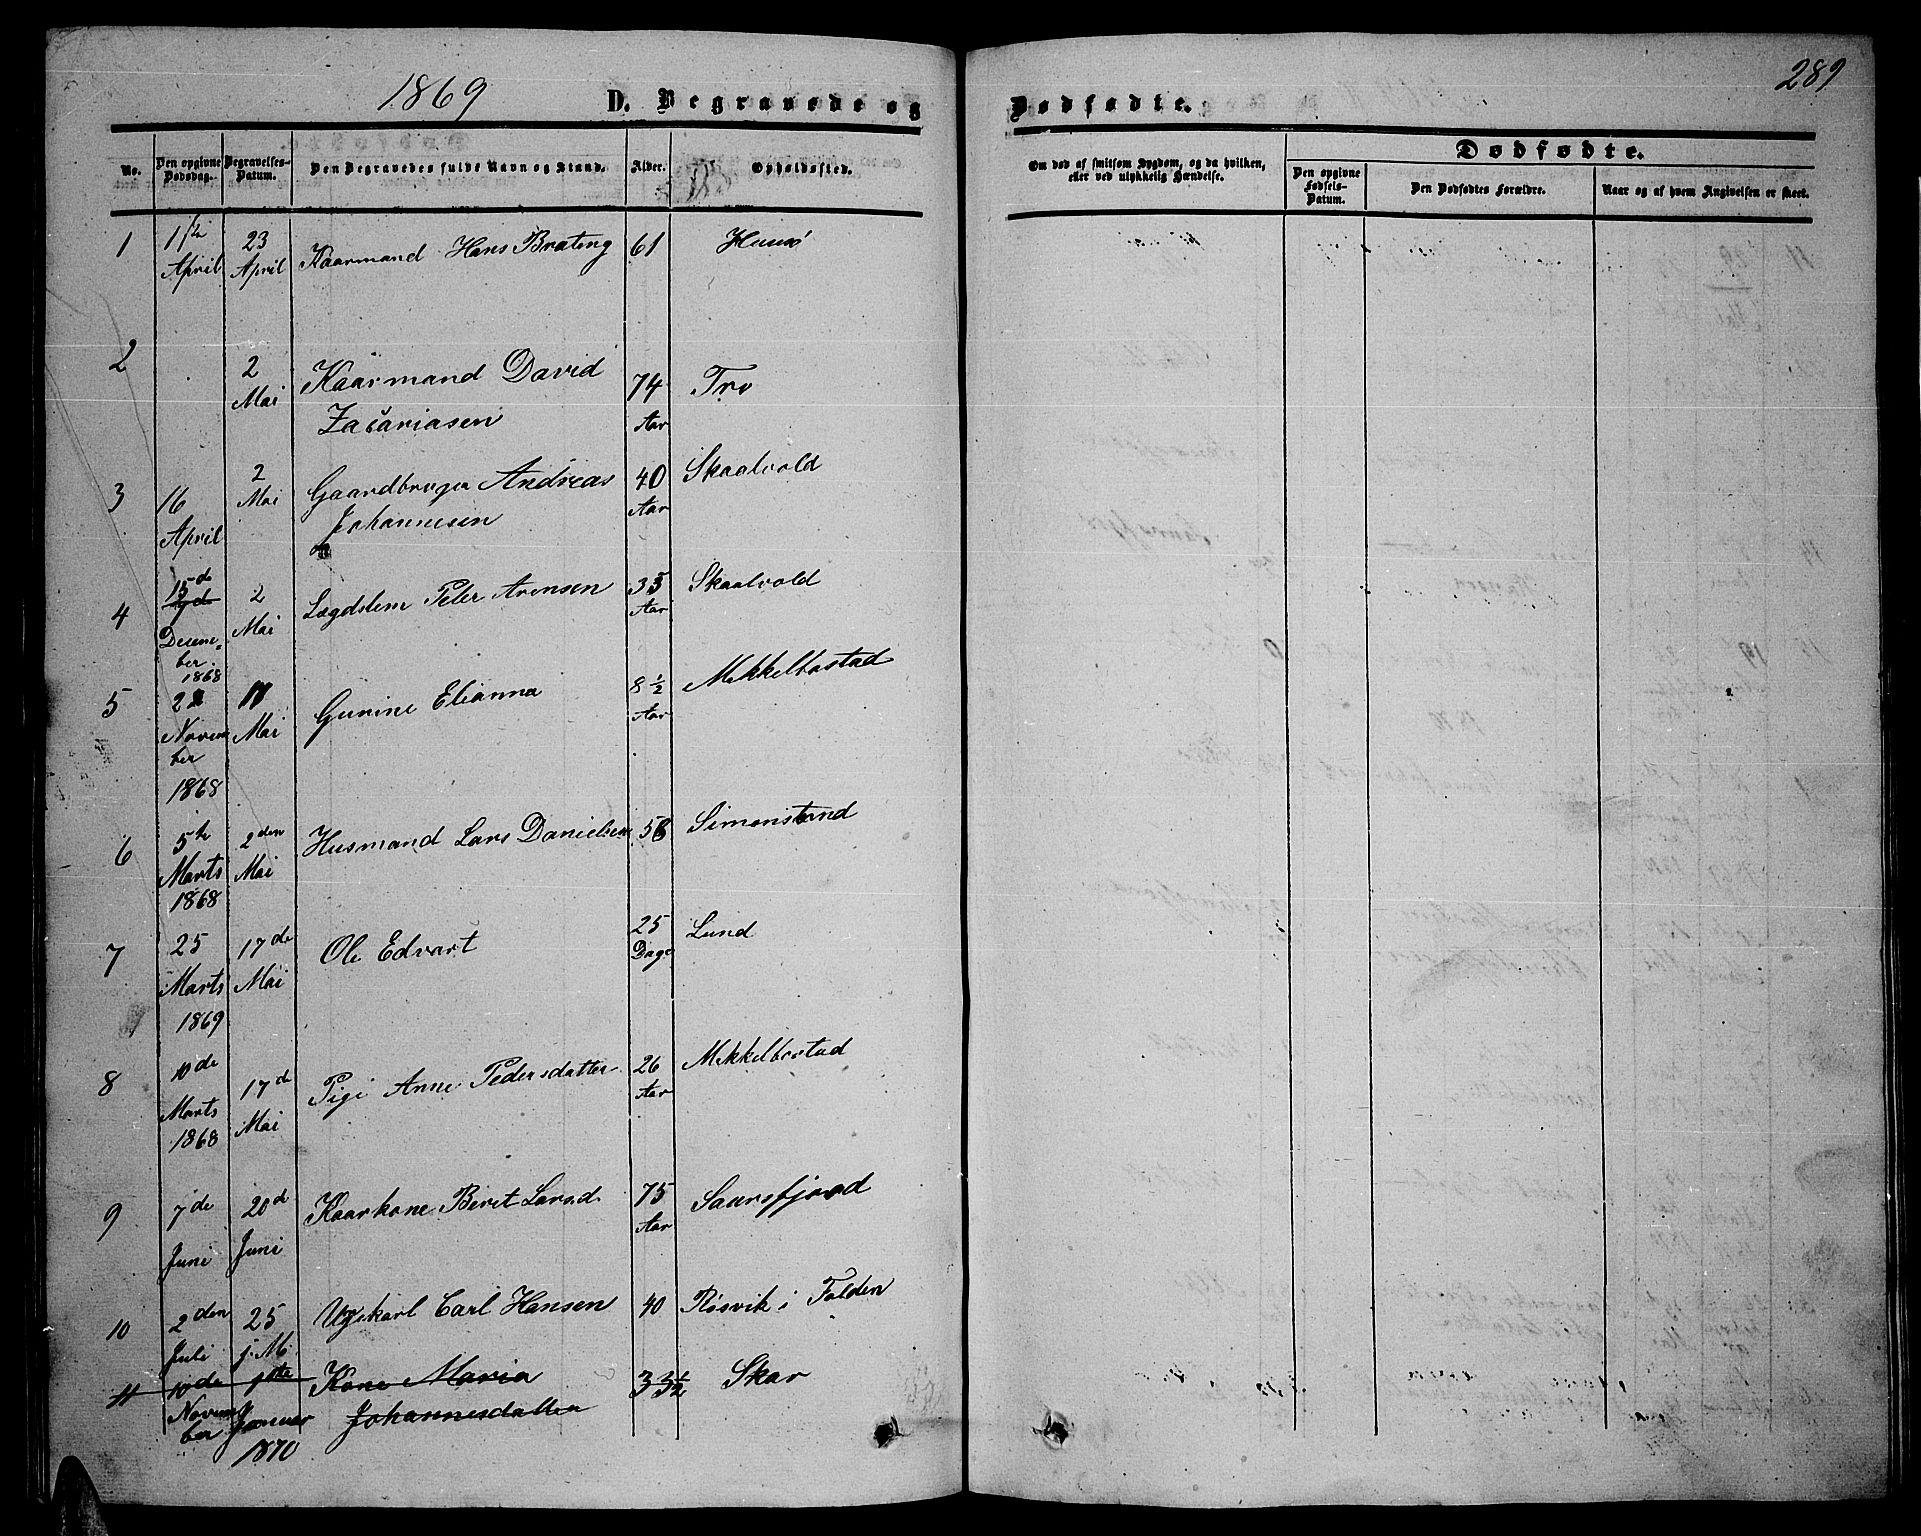 1869 D. Begravede og
Dødfødte. 289
No. Den opgivne Dødsdag. Begravelses-Datum. Den Begravedes fulde Navn og Stand. Alder. Opholdssted.
Om død af smitsom Sygdom, og da hvilken, eller ved ulykkelig Hændelse.
Dødfødte.
Den opgivne Fødsels-Datum. Den Dødfødtes Forældre. Naar og af hvem Angivelsen er skeet.
1 April 23 April Kaarmand Hans Brateng 61
2 2 Mai Kaarmand David 74 Aar Tro
Zacariasen
3 16 April 2 Mai Gaardbruger Andreas 40 Aar Skaalvold
Johannesen
4 15de December 1868 2 Mai Lægdslem Peter Arensen 35 Aar Skaalvold
5 November 1868 Mai Gurine Elianna 8 1/2 Aar Mekkelbostad
6 5te Marts 1868 2den Mai Husmand Lars Danielsen Simonstrand
7 25 Marts 1869 17de Mai Ole Edvart 25 Dage Lund
8 10de Marts 1868 17de Mai Pige Anne Pedersdatter 26 Aar Mekkelbostad
9 7de Juni 20de Juni Kaarkone Beret Larsd 75 Aar Saursfjord
10 2den Juli 25 j. M. Ugekarl Carl Hansen 40 Røsvik i Folden
11 10de November 1ste Januar 1870 Kone Maria 33 1/2 Skar
Johannesdatter